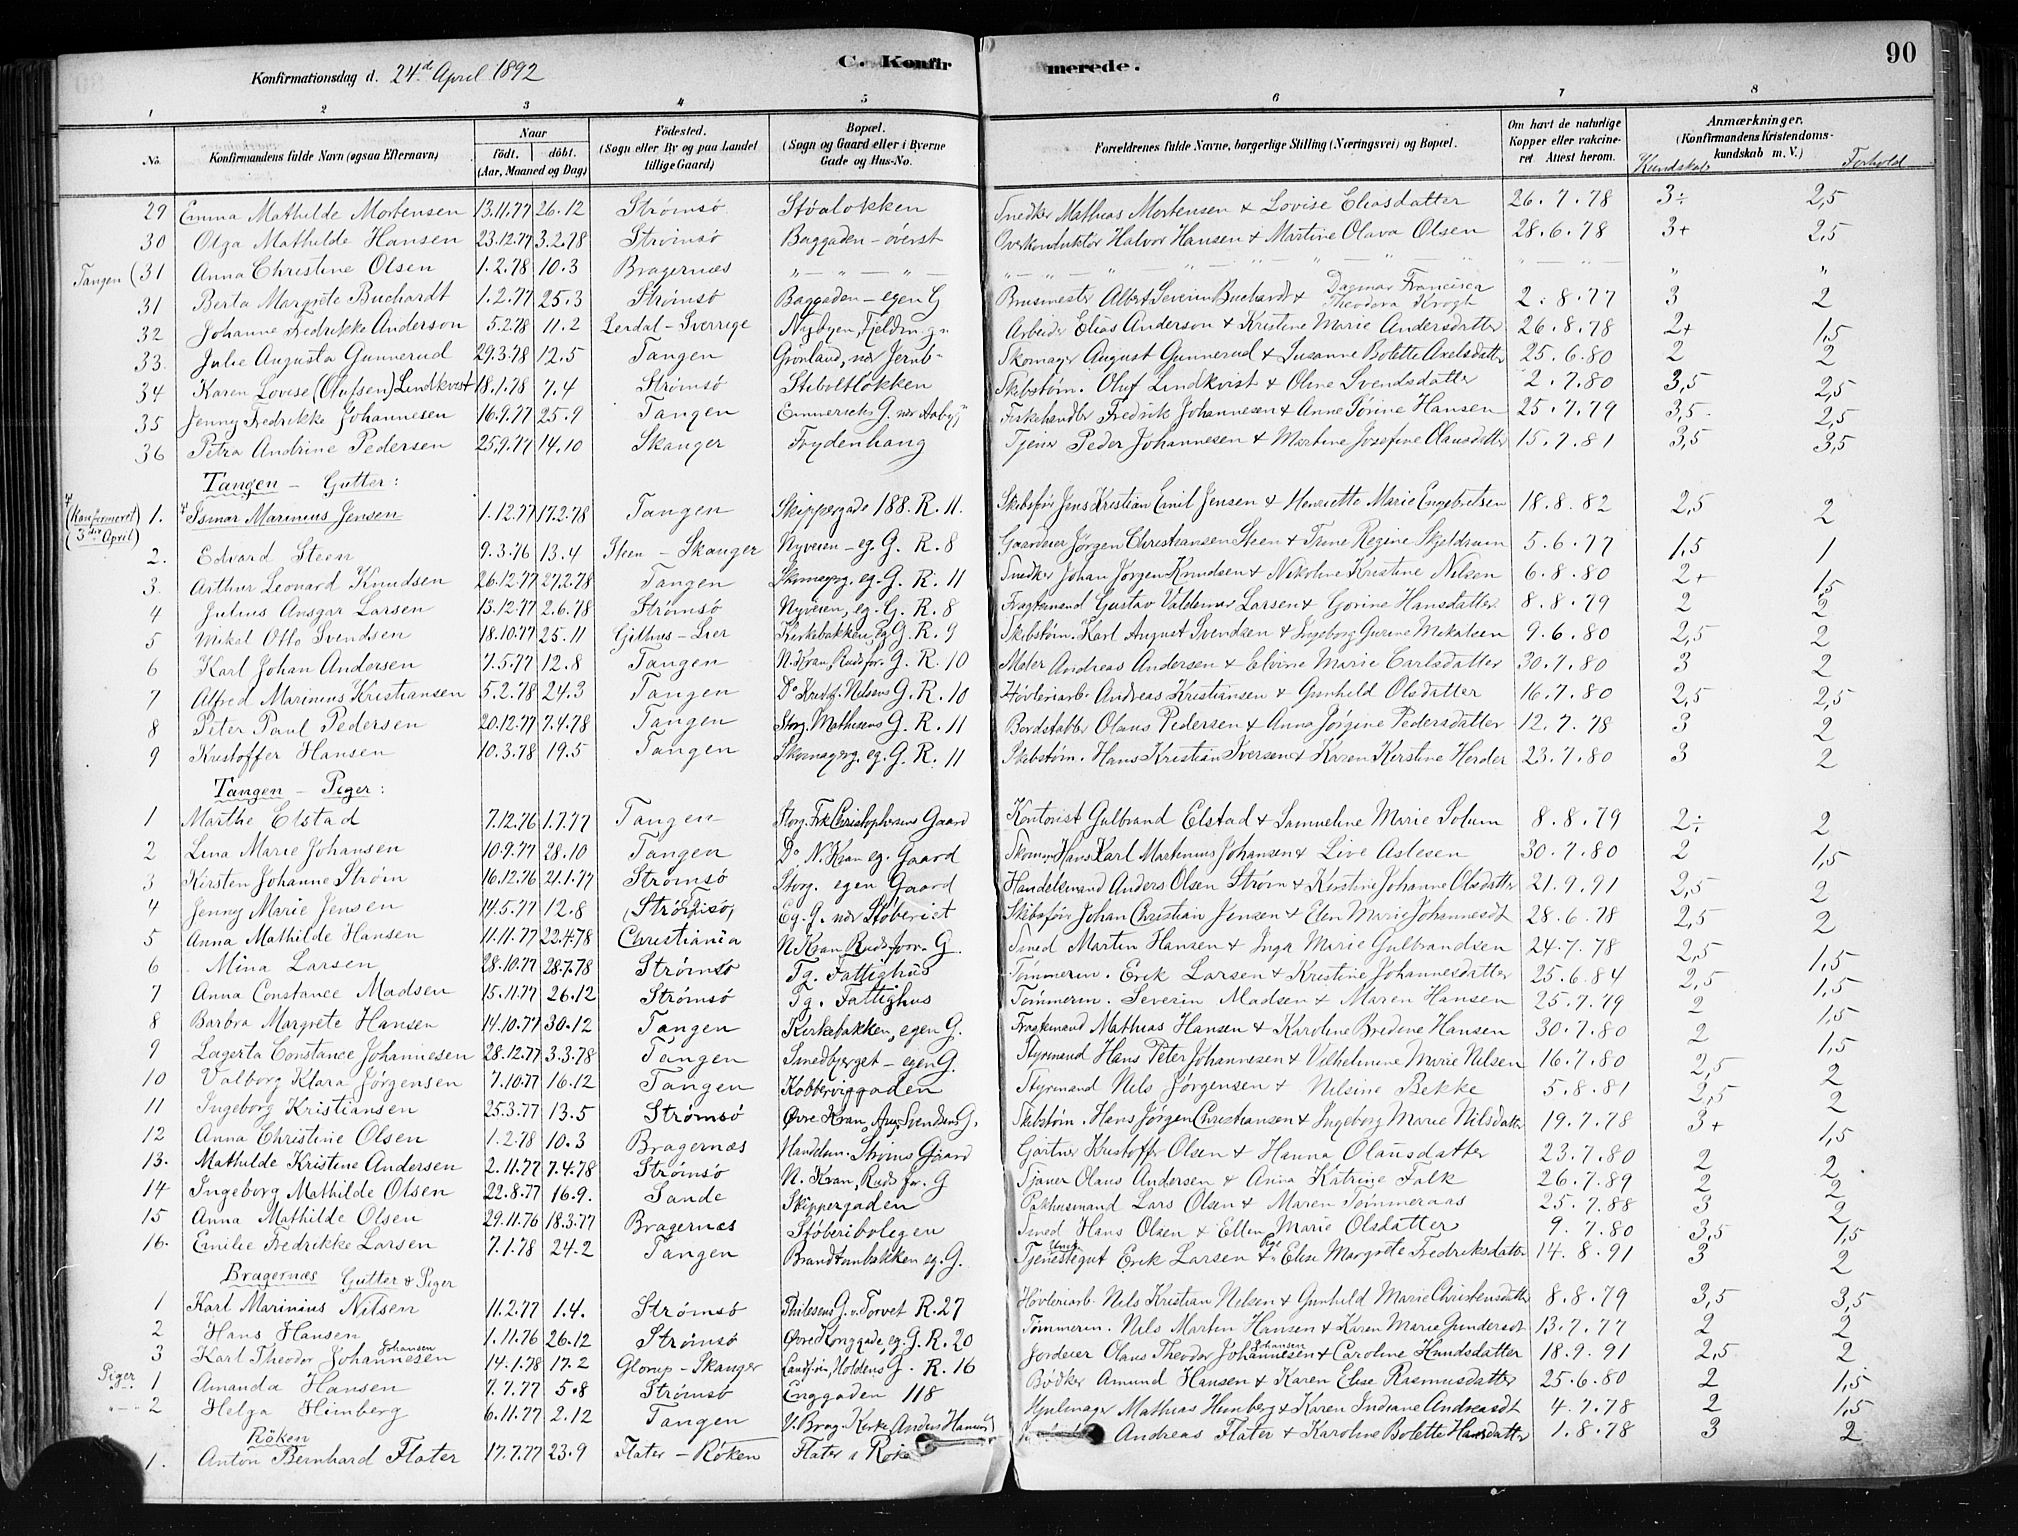 90
Konfirmationsdag d. 24.d April 1892 C. Konfirmerede.
1 2 3 4 5 6 7 8
No. Konfirmandens fulde Navn (ogsaa Efternavn) Naar født. døbt. (Aar, Maaned og Dag) Fødested. (Sogn eller By og paa Landet tillige Gaard) Bopæl. (Sogn og Gaard eller i Byerne Gade og Hus-No. Forældrenes fulde Navne, borgerlige Stilling (Næringsvei) og Bopæl. Om havt de naturlige Kopper eller vakcineret. Attest herom. Anmærkninger. (Konfirmandens Kristendomskundskab m. V.) Kundskab Forhold
29 Emma Mathilde Mortensen 13.11.77 26.12 Strømsø Støalökken Snedker Mathias Mortensen & Lovise Eliasdatter 26.7.78 3÷ 2,5
30 Olga Mathilde Hansen 23.12.77 3.2.78 Strømsø Baggaden - överst Overkonduktör Halvor Hansen & Martine Olava Olsen 28.6.78 3+ 2,5
Tangen (31 Anna Christine Olsen 1.2.78 10.3 Bragernæs " — " — " — " " "
31 Berta Margrete Buchardt 1.2.77 25.3 Strømsö Baggaden - egen G Albert Severin Buchardt & Dagmar Francisca Theodora Krogh 2.8.77 3 2
32 Johanne Fredrikke Anderson 5.2.78 11.2 Lerdal - Sverrige Nybyen, Arbeider Elias Anderson & Kristine Marie Andersdatter 26.8.78 2+ 1,5
33. Julie Augusta Gunnerud 29.3.78 12.5 Tangen Grönland, nær Jernb- Skomager August Gunnerud & Susanne Bolette Axelsdatter 25.6.80 2 2
34 Karen Lovise (Olufsen) Lindkvist 18.1.78 7.4 Strømsö Stiboltlökken Skibstøm. Oluf Lindkvist & Oline Svendsdatter 2.7.80 3,5 2,5
35 Jenny Fredrikke Johannesen 16.9.77 25.9 Tangen Emmerichs G. nær Aaby Fiskehandler Fredrik Johannesen & Anne Sörine Hansen 25.7.79 3,5 2,5
36 Petra Andrine Pedersen 25.9.77 14.10 Skanger Frydenhaug Tjener Peder Johannesen & Martine Josefine Olausdatter 15.7.81 3,5 3,5
Tangen - Gutter:
(Konfirmeret 3die April) 1. Ismar Marinius Jensen 1.12.77 17.2.78 Tangen Skippergade 188. R. 11. Skibsför Jens Kristian Emil Jensen & Henriette Marie Engebretsen 18.8.82 2,5 2
2. Edvard Steen 9.3.76 13.4 Steen - Skanger Nyveien - eg. G. R. 8 Gaardeier Jørgen Christiansen Steen & Trine Regine Skjeldrum 5.6.77 1,5 1
3. Arthur Leonard Knudsen 26.12.77 27.2.78 Tangen Skomagrg. eg. G. R. 11 Snedker Johan Jørgen Knudsen & Nikoline Kristine Nilsen 6.8.80 2+ 1,5
4 Julius Ansgar Larsen 13.12.77 2.6.78 Strømsö Nyveien, eg. G. R. 8 Fragtemand Gustav Valdemar Larsen & Gorine Hansdatter 8.8.79 2 2
5 Mikal Otto Svendsen 18.10.77 25.11 Gilhus - Lier Kirkebakken, eg G. R. 9 Skibstøm. Karl August Svendsen & Ingeborg Gurine Mikalsen 9.6.80 2,5 2
6 Karl Johan Andersen 7.5.77 12.8 Tangen N. Kran, Rudsfor. G. R. 10 Maler Andreas Andersen & Elvine Marie Carlsdatter 30.7.80 3 2
7 Alfred Marinius Kristiansen 5.2.78 24.3 Tangen Do Kristf. Nelsens G. R. 10 Høvleriarb. Andreas Kristiansen & Gunhild Olsdatter 16.7.80 2,5 2,5
8 Peter Paul Pedersen 20.12.77 7.4.78 Tangen Storg. Mathisens G. R. 11 Bordstabler Olaus Pedersen & Anna Jørgine Pedersdatter 12.7.78 3 2
9 Kristoffer Hansen 10.3.78 19.5 Tangen Skomagrg. eg. G. R. 11 Skibstøm. Hans Kristian Iversen & Karen Kirstine Herder 23.7.80 3 2
Tangen - Piger:
1 Marthe Elstad 7.12.76 1.7.77 Tangen Storg. Frk Christophersens Gaard Kontorist Gulbrand Elstad & Samueline Marie Solum 8.8.79 2÷ 2
2 Lina Marie Johansen 10.9.77 28.10 Tangen Do N. Kran eg. Gaard Hans Karl Martinius Johansen & Live Aslesen 30.7.80 2 1,5
3 Kirsten Johanne Strøm 16.12.76 21.1.77 Strømsö Storg. egen Gaard Handelsmand Anders Olsen Strøm & Kirstine Johanne Olsdatter 21.9.91 2,5 2
4 Jenny Marie Jensen 14.5.77 12.8 (Strömsø) Eg. G. nær Støberiet Skibsför Johan Christian Jensen & Elen Marie Johannesdt 28.6.78 2,5 2
5 Anna Mathilde Hansen 11.11.77 22.4.78 Christiania N. Kran Rudsfor. G. Smed Martin Hansen & Inga Marie Gulbrandsen 24.7.78 2,5 1,5
6 Mina Larsen 28.10.77 28.7.78 Strømsö Tg. Fattighus Tømmerm. Erik Larsen & Kristine Johannesdatter 25.6.84 2,5 1,5
7 Anna Constance Madsen 15.11.77 26.12 Strømsö Tg. Fattighus Tømmerm. Severin Madsen & Maren Hansen 25.7.79 2 1,5
8 Barbra Margrete Hansen 14.10.77 30.12 Tangen Kirkebakken, egen G. Fragtemand Mathias Hansen & Karoline Bredine Hansen 30.7.80 2 1,5
9 Lagerta Constance Johannesen 28.12.77 3.3.78 Tangen Smedbjerget - egen G. Styrmand Hans Peter Johannesen & Vilhelmine Marie Nilsen 16.7.80 2,5 2
10 Valborg Klara Jörgensen 7.10.77 16.12 Tangen Kobberviggaden Styrmand Nils Jørgensen & Nelsine Bekke 5.8.81 2,5 2
11 Ingeborg Kristiansen 25.3.77 13.5 Strømsö Øvre Kran, Aug Svendsens G. Skibstøm. Hans Jørgen Christiansen & Ingeborg Marie Nilsdatter 19.7.78 3+ 1,5
12 Anna Christine Olsen 1.2.78 10.3 Bragernæs Handelsm. Strøms Gaard Gartner Kristoffer Olsen & Hanna Olausdatter 23.7.80 2 2
13. Mathilde Kristine Andersen 2.11.77 7.4.78 Strømsö N. Kran, Ruds for. G Tjener Olaus Andersen & Anna Katrine Falk 26.7.89 2 2
14 Ingeborg Mathilde Olsen 22.8.77 16.9. Sande Skippergaden Pakhusmand Lars Olsen & Maren Tømmeraas 25.7.88 3 2
15 Anna Mathilde Olsen 29.11.76 18.3.77 Bragernæs Støberiboligen Smed Hans Olsen & Ellen Marie Olsdatter 9.7.80 3,5 1,5
16. Emilie Fredrikke Larsen 7.1.78 24.2 Tangen Brandtenbakken eg. G. Tjenestegut Erik Larsen & Pige Elise Margrete Fredriksdatter 14.8.91 3 2
Bragernæs Gutter & Piger
1 Karl Marinius Nilsen 11.2.77 1.4. Strømsö Thilesens G. v. Torvet R. 27 Høvleriarb. Nils Kristian Nilsen & Gunhild Marie Christensdatter 8.8.79 3,5 3,5
2 Hans Hansen 1.11.76 26.12 Strømsö Øvre Enggade, eg. G. R. 20 Tømmerm. Nils Martin Hansen & Karen Marie Gundersdt 13.7.77 2 2
3 Karl Theodor Johannesen Johansen 14.1.78 17.2 Glorup - Skanger Holdens G. R. 16 Jordeier Olaus Theodor Johannesen Johansen & Caroline Hundsdatter 18.9.91 2,5 2
Piger 1 Amanda Hansen 7.7.77 5.8 Strømsö Enggaden 118 Bødker Amund Hansen & Karen Elise Rasmusdatter 25.6.80 2 1,5
" 2 Helga Himberg 6.11.77 2.12 Tangen v. Brag. Kirke, Anders Hansens Hjulmager Mathias Himberg & Karen Indiane Andreasdt 4.7.78 2 1,5
Röken
1. Anton Bernhard Flater 17.7.77 23.9 Flater - Röken Flater i Röken Andreas Flater & Karoline Bolette Hansdatter 1.8.78 3 2